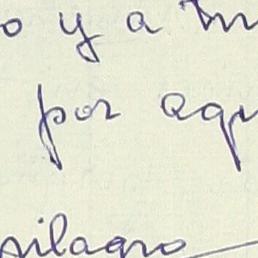 o y a
por aqu
milagro